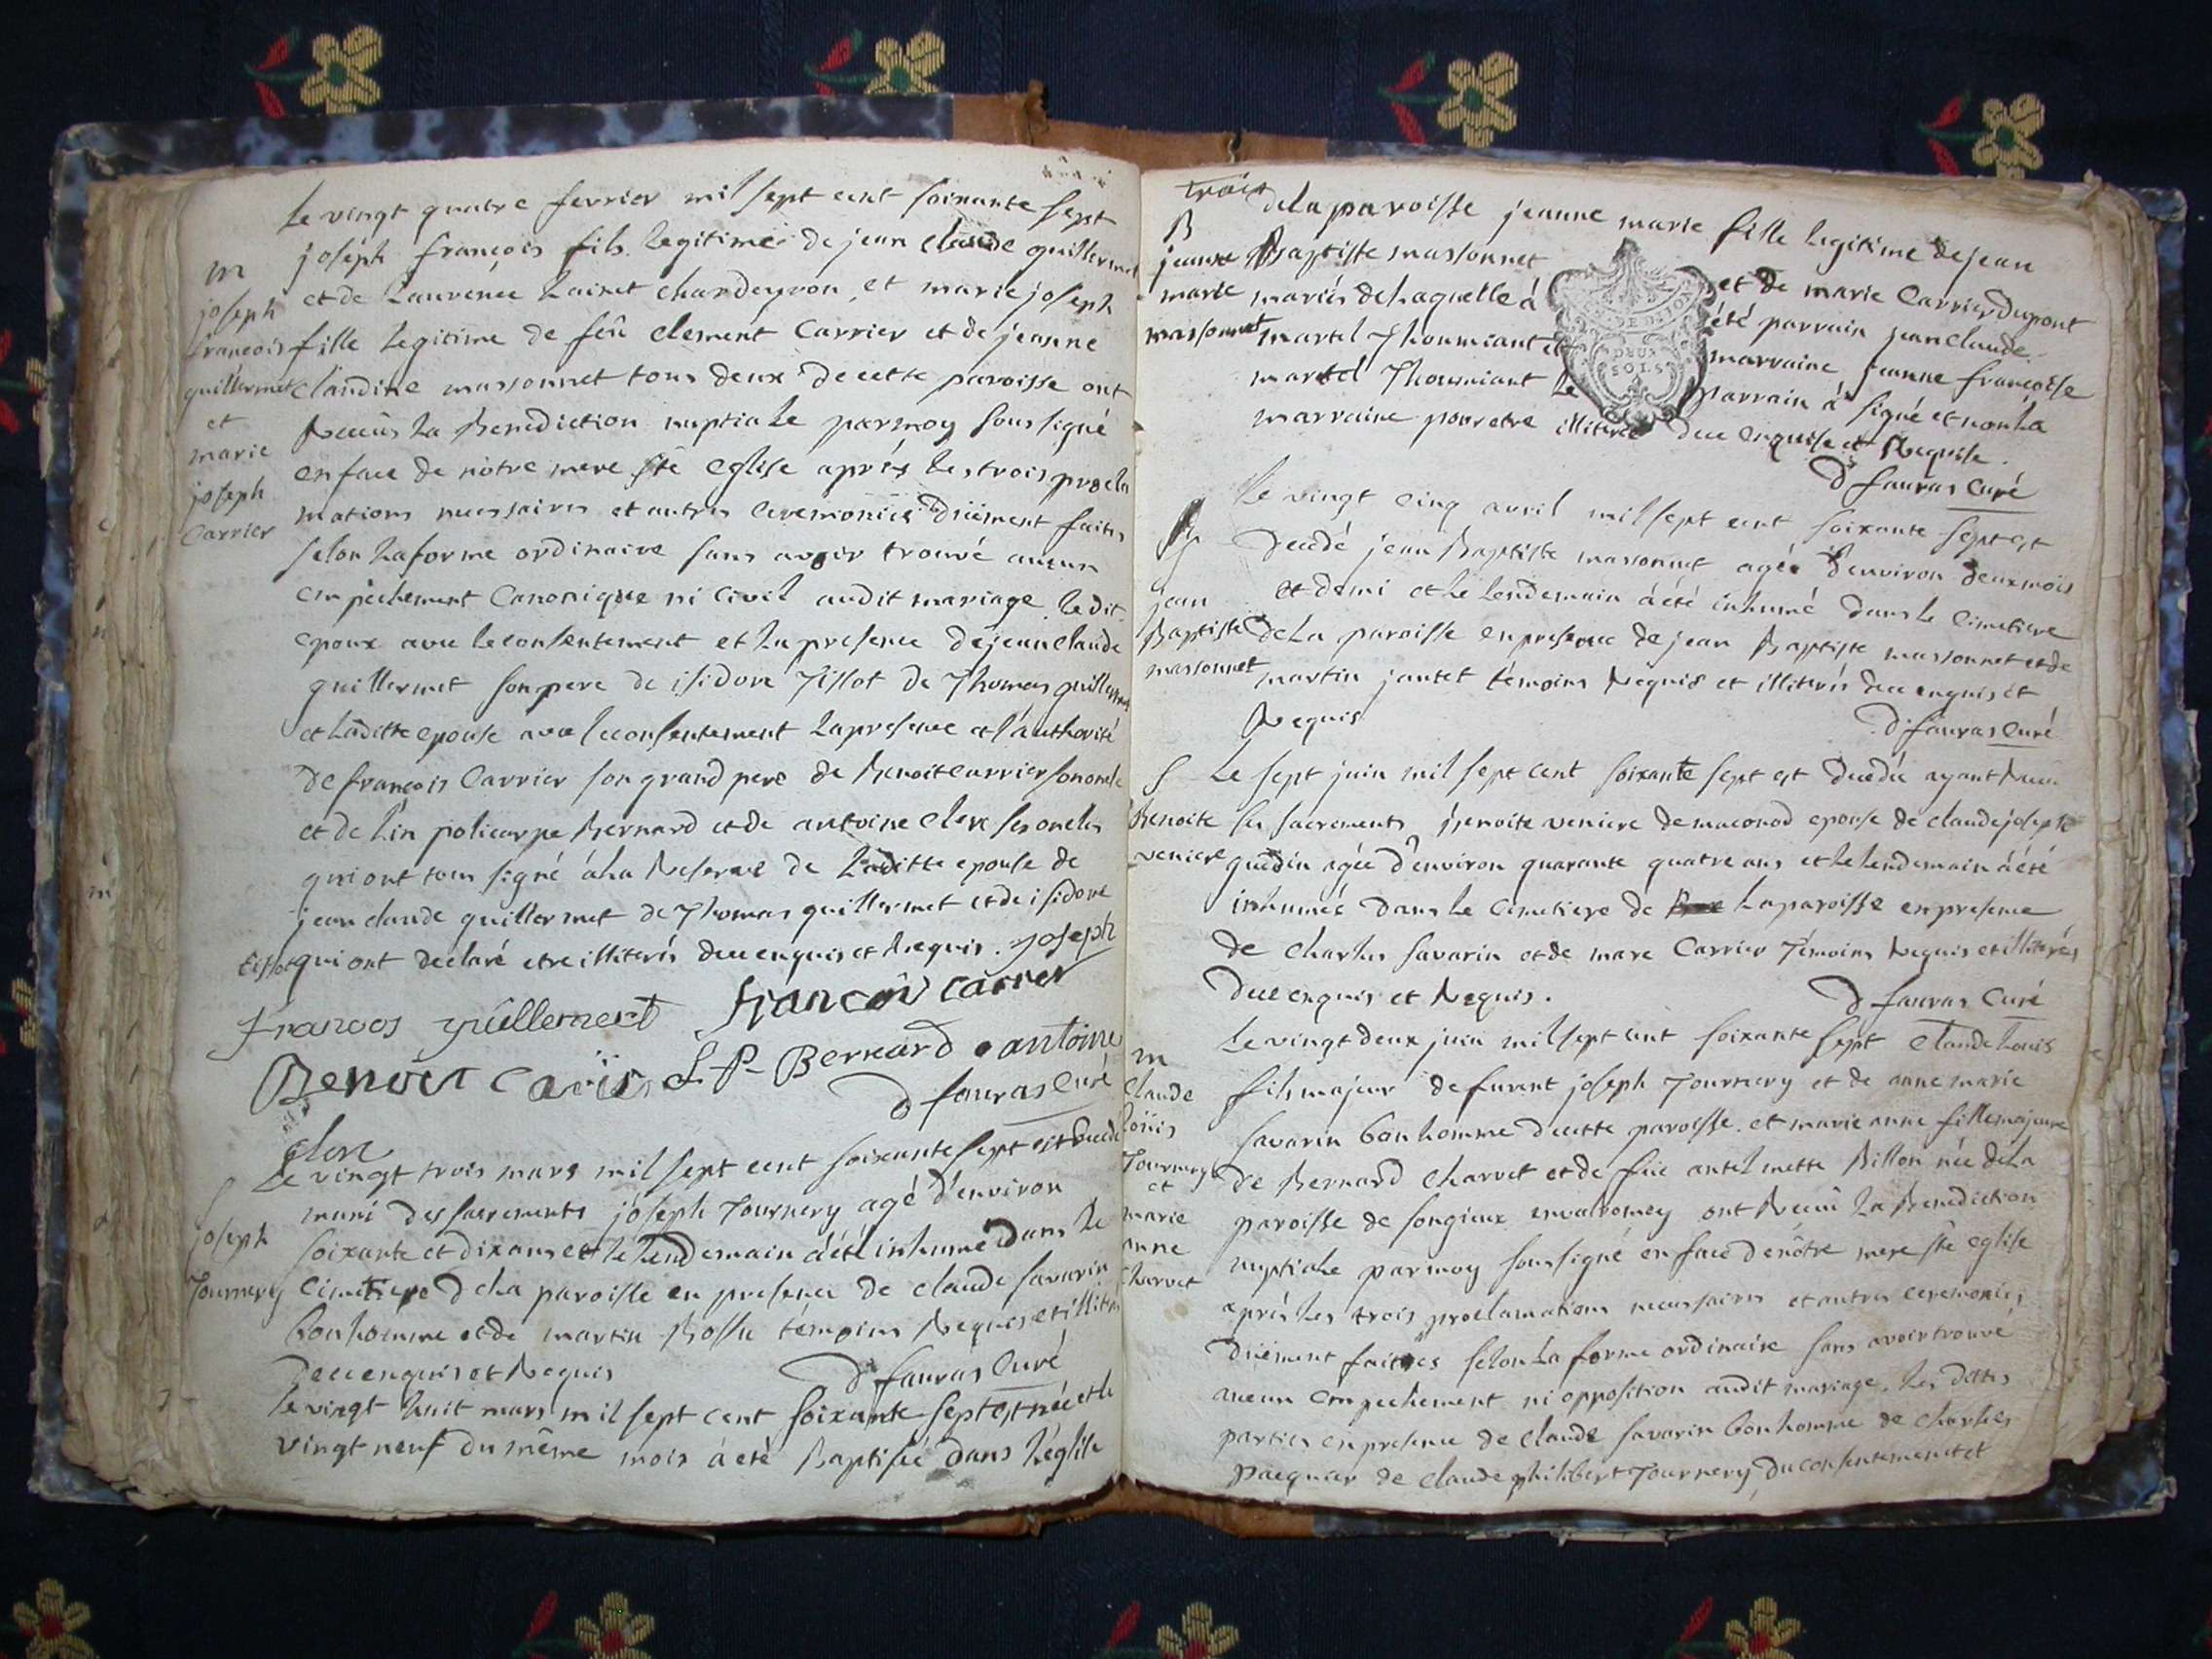 Le vingt quatre fevrier mil sept cent soixante sept
m
joseph
françois
guillermet
et
marie
joseph
Carrier
joseph françois fils legitime de jean claude guillermet
et de Laurence Lainet chardeyron, et marie joseph
fille legitime de feû clement Carrier et de jeanne
claudine massonnet tous deux de cette paroisse ont
Recûs la Benediction nuptiale par moy soussigné
en face de nôtre mere ste eglise aprés les trois procla
mations necessaires et autres ceremonies düement faites
selon la forme ordinaire sans avoir trouvé aucun
empêchement Canonique ni civil audit mariage. le dit
epoux avec le consentement et la presence de jean claude
guillermet son pere de isidore Tissot de Thomas guillermet
et laditte epouse avec le consentement la presence et l'authorité
de françois Carrier son grand pere de Benoit Carrier son oncle
et de Lin policarpe Bernard et de antoine clerc ses oncles
qui ont tous signé à la Reserve de laditte epouse de
jean claude guillermet de Thomas guillermet et de isidore
tissot qui ont declaré etre illiterés de ce enquis et Requis. joseph
francos guillemert françois carrier
Benoit L P Bernard antoine
D fauras Curé
clerc
Le vingt trois mars mil sept cent soixante sept est decedé
S
joseph
Tournery
muni des sacrements joseph Tournery agé d'environ
soixante et dix ans et le lendemain à été inhumé dans le
cimetiere de la paroisse en presence de claude savarin
bonhomme et de martin Bossu témoins Requis et illiterés
de ce enquis et Requis D fauras Curé
le vingt huit mars mil sept cent soixante sept est née et le
vingt neuf du même mois à eté Baptisée dans l'église
trois
de la paroisse jeanne marie fille legitime de jean
B
jeanne
marie
massonnet
Baptiste massonnet et de marie Carrier Dupont
mariés de laquelle à été parrain jean claude
martel Thoumiant et marraine jeanne françoise
martel Thoumiant le parrain à signé et non la
marraine pour etre illiterée de ce enquise et Requise.
D fauras Curé
Le vingt cinq avril mil sept cent soixante sept est
S
jean
Baptiste
massonnet
decedé jean Baptiste massonnet agé d'environ deux mois
et demi et le lendemain à été inhumé dans le cimetiere
de la paroisse en presence de jean Baptiste massonnet et de
martin jantet témoins Requis et illiterés de ce enquis et
Requis D fauras Curé
S
Benoite
veniere
Le sept juin mil sept cent soixante sept est decedée ayant Recu
les sacrements Benoite veniere de maconod epouse de claude joseph
guedin agée d'environ quarante quatre ans et le lendemain à été
inhumée dans le cimetiere de la paroisse en presence
de Charles savarin et de marc Carrier Témoins Requis et illiterés
de ce enquis et Requis. D fauras Curé
Le vingt deux juin mil sept cent soixante sept claude Louis
m
Claude
Loüis
Tournery
et
marie
anne
Charvet
fils majeur de furent joseph Tournery et de anne marie
savarin bonhomme de cette paroisse. et marie anne fille majeure
de Bernard Charvet et de feüe antelmette Billon née de la
paroisse de songieux en valromey ont Recûû la Benediction
nuptiale par moy soussigné en face de nôtre mere ste eglise
aprés les trois proclamations necessaires et autres ceremonies
düement faittes selon la forme ordinaire sans avoir trouvé
aucun empechement ni opposition audit mariage. les dittes
parties en presence de claude savarin bonhomme de charles
pacquier de claude philibert Tournery du consentement et
DEUX
SOLS